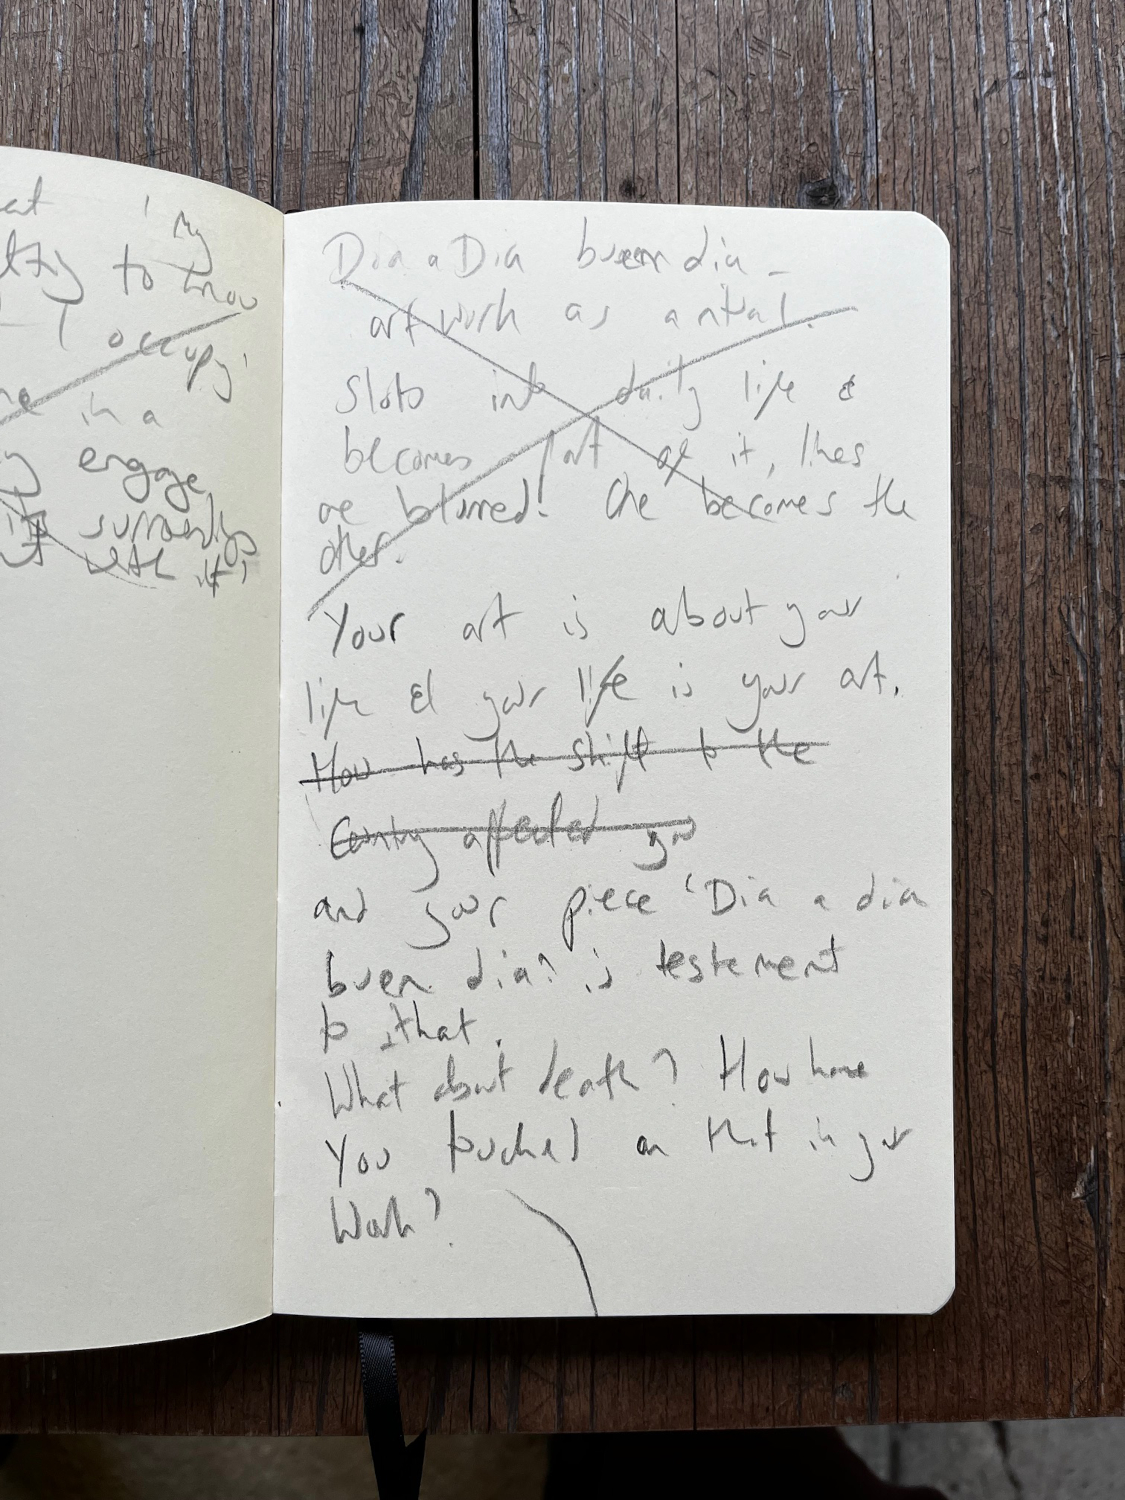 my
to know
I occupy'
in a
engage
it surroundings
with it'
Dia a Dia buen dia -
art work as a ritual.
Slots into daily life &
becomes part of it, lines
are blurred! One becomes the
other.
Your art is about your
life & your life is your art.
How has the shift to the
Country affected you
and your piece 'Dia a dia
buen dia' is testement
to that.
What about death? How have
you touched on that in your
work?